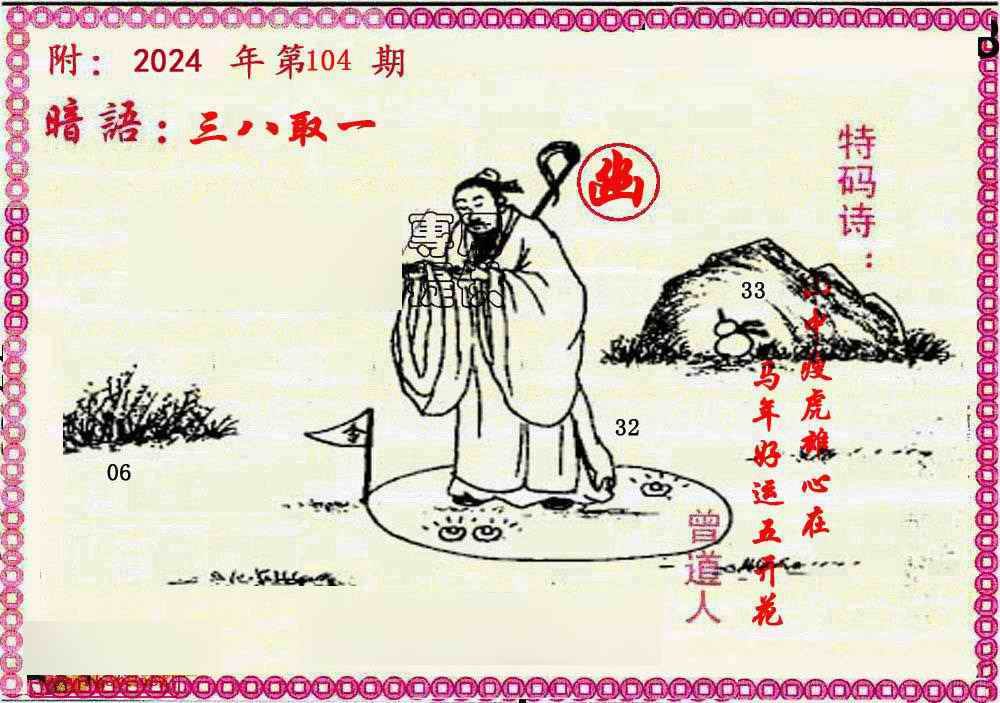 附： 2024 年 第104 期
暗語：三八取一
幽
特码诗：
山中瘦虎雄心在
马年好运五开花
33
32
06
曾道人